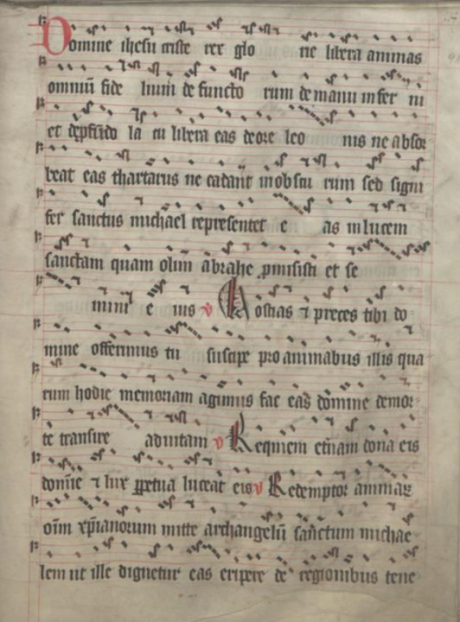 Domine ihesu criste rex glo rie libera animas
omniū fide lium de functo rum de manu infer ni
et de pfūdo la cu libera eas de ore leo nis ne absor
beat eas thartarus ne cadant in obscu rum sed signi
fer sanctus michael representet e as in lucem
sanctam quam olim abrahe pmisisti et se
mini e ius v Hostias ⁊ preces tibi do
mine offerimus tu suscipe pro animabus illis qua
rum hodie memoriam agimus fac eas domine de mor
te transire ad vitam v Requiem etnam dona eis
domie ⁊ lux ppetua luceat eis v Redemptor animarꝫ
oīm xpianorum mitte archangelū sanctum michae
lem ut ille dignetur eas eripere de regionibus tene